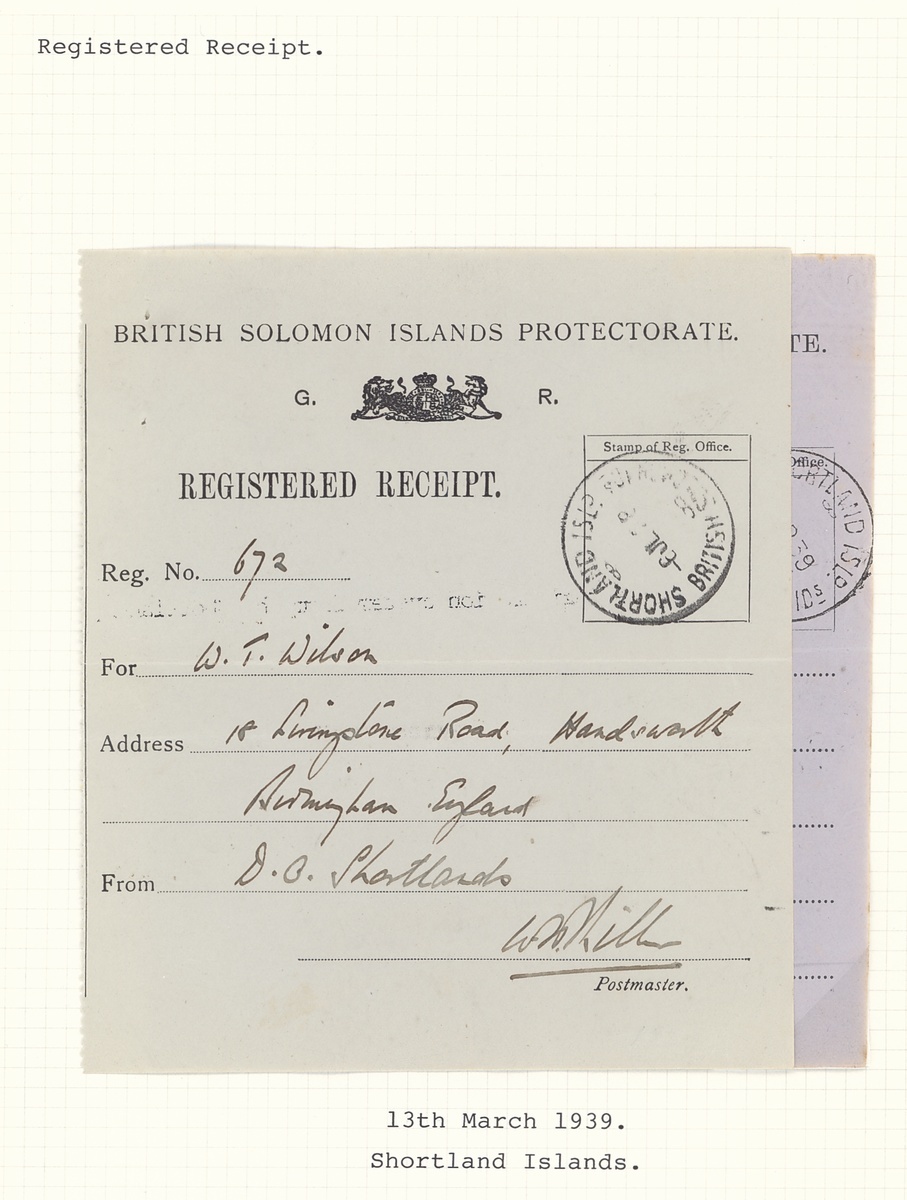 Registered Receipt.
BRITISH SOLOMON ISLANDS PROTECTORATE.
TE.
G. R.
Stamp of Reg. Office.
Office.
REGISTERED RECEIPT.
SHORTLAND ISLS BRITISH
JUL
RTLAND ISLDS
39
IDs
Reg. No. 672
For W. T. Wilson
Address 18 Livingstone Road, Handsworth
Birmingham England
From D.O. Shortlands
Postmaster.
13th March 1939.
Shortland Islands.